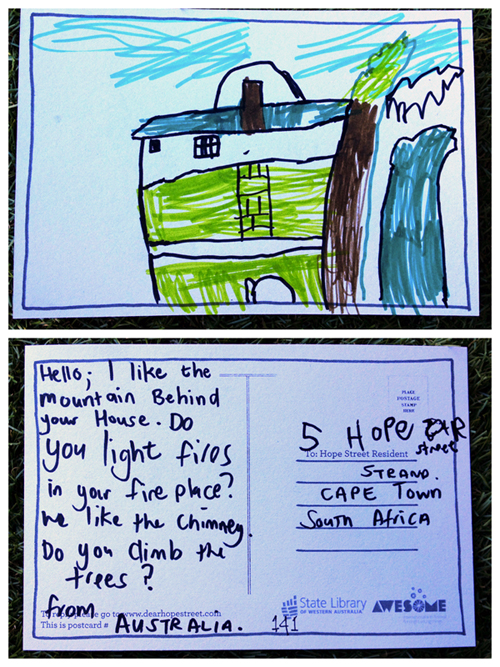 Hello; I like the
mountain Behind
your House. Do
you light fires
in your fire place?
we like the chimney.
Do you climb the
trees?
from
AUSTRALIA.
PLACE
POSTAGE
STAMP
HERE
5 HOPE
street
To: Hope Street Resident
STRAND.
CAPE Town
South Africa
go to www.dearhopestreet.com
This is postcard #
141
State Library
OF WESTERN AUSTRALIA
AWESOME